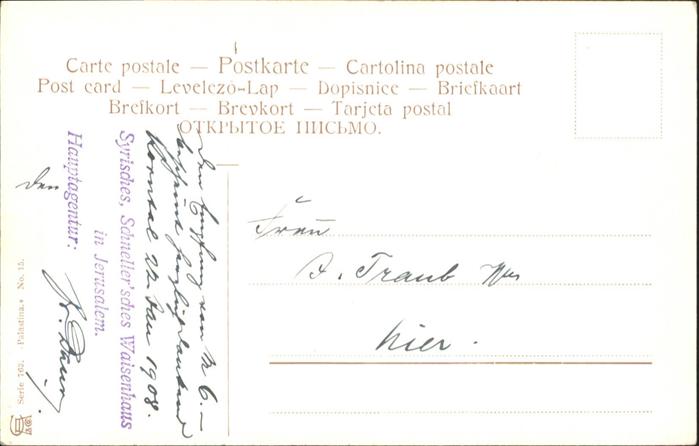 Carte postale — Postkarte — Cartolina postale
Post card — Levelező-Lap — Dopisnice — Briefkaart
Brefkort — Brevkort — Tarjeta postal
ОТКРЫТОЕ ПИСЬМО.
Den Empfang von M 6.–
bescheint herzlich dankend
Korntal 22. Jan 1908.
Syrisches, Schneller'sches Waisenhaus
in Jerusalem.
Hauptagentur:
den
Serie 762. „Palästina.“ No. 15.
Frau
J. Traub
hier.